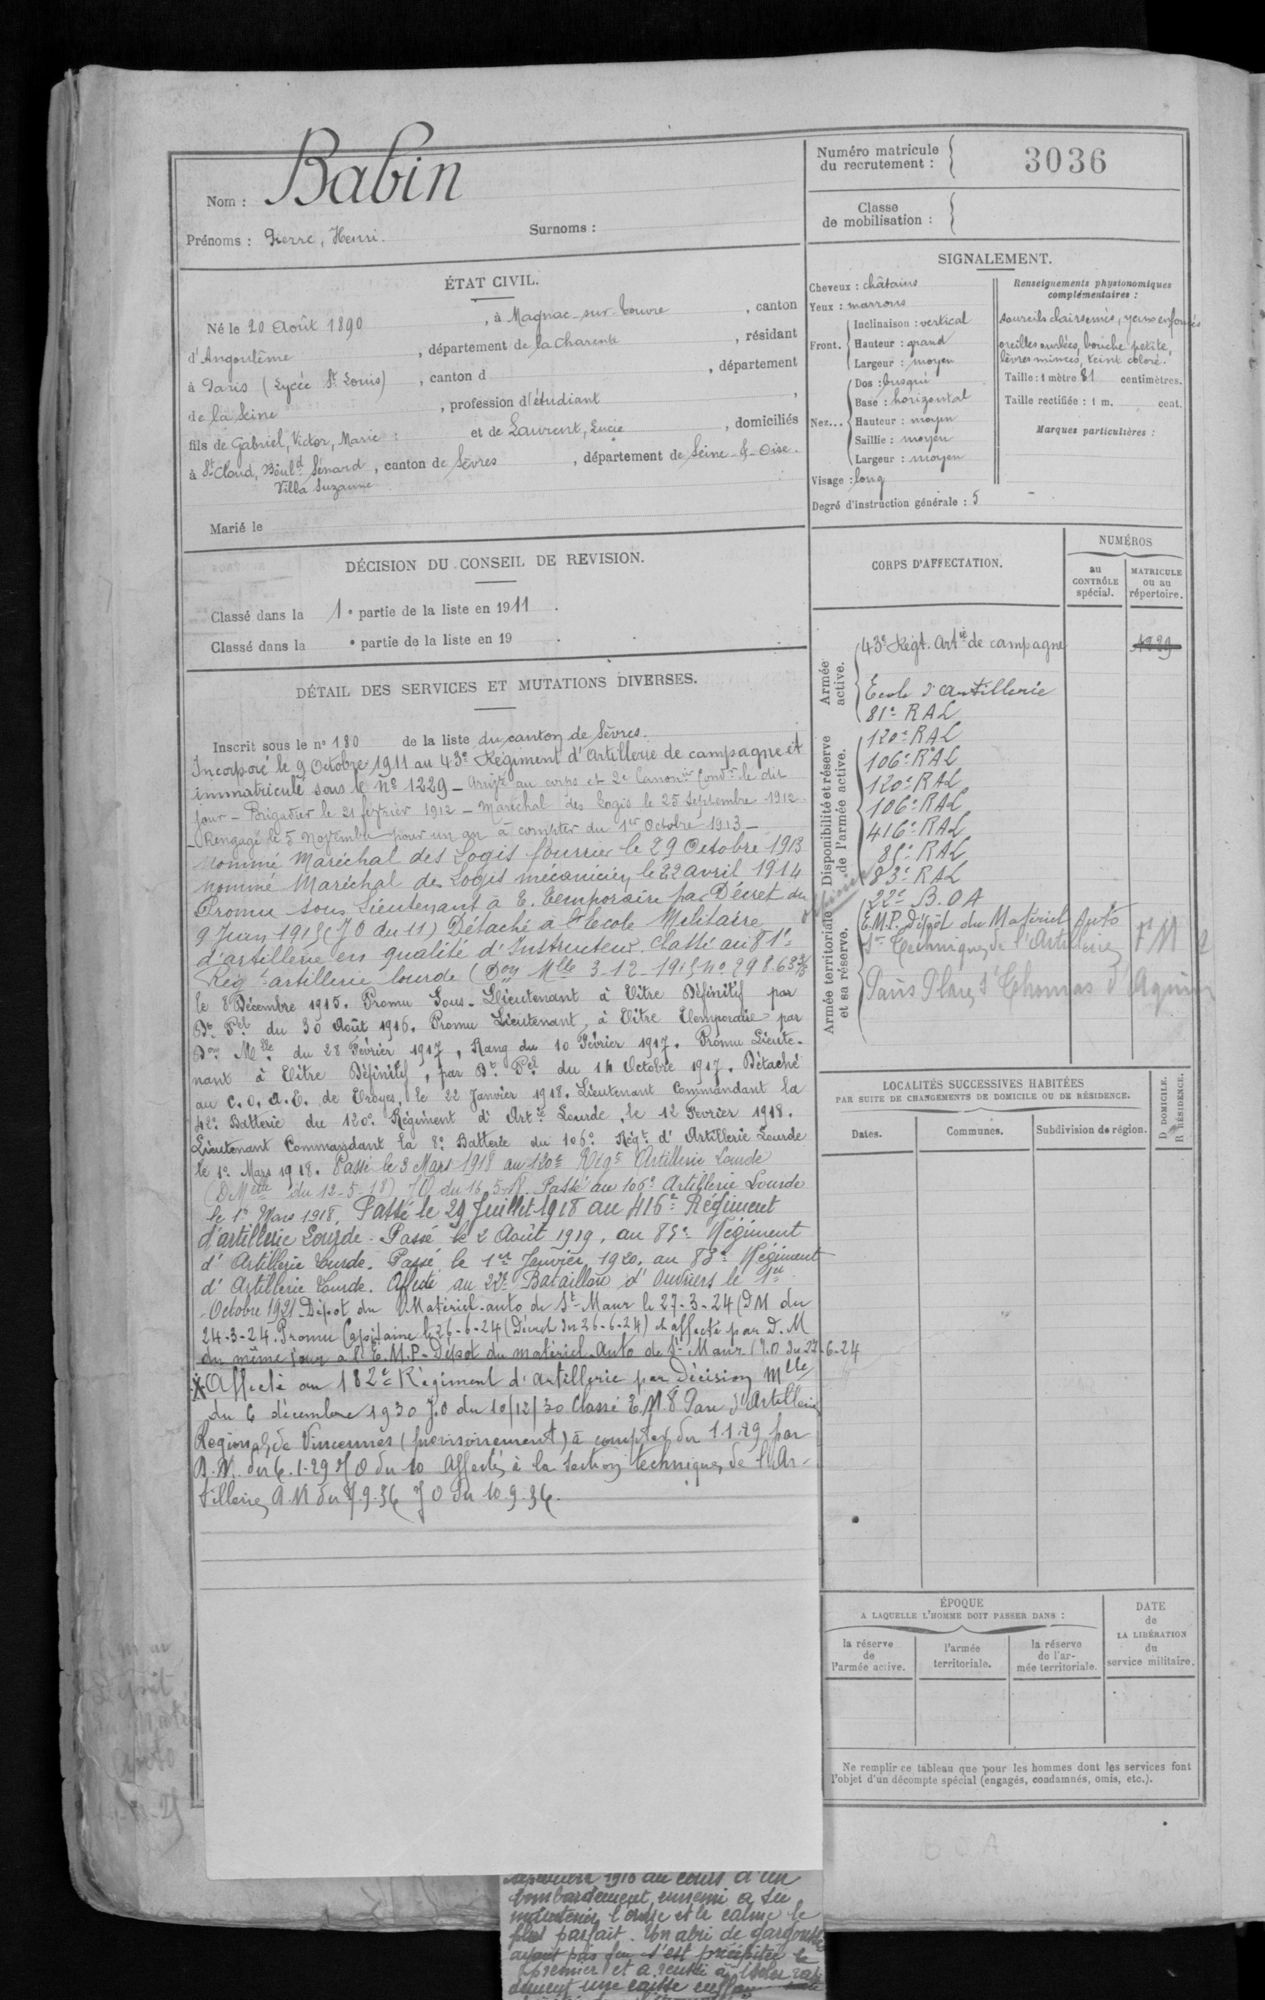 Nom : Babin
Prénoms : Pierre, Henri. Surnoms :
ÉTAT CIVIL.
Né le 20 Août 1890, à Magnac-sur-Touvre, canton
d'Angoulême, département de la Charente, résidant
à Paris (Lycée St Louis), canton d , département
de la Seine, profession d'étudiant,
fils de Gabriel, Victor, Marie et de Laurent, Lucie, domiciliés
à St Cloud, Boul.d Sénard, canton de Sèvres, département de Seine-&-Oise.
Villa Suzanne
Marié le
DÉCISION DU CONSEIL DE REVISION.
Classé dans la 1e partie de la liste en 1911.
Classé dans la e partie de la liste en 19 .
DÉTAIL DES SERVICES ET MUTATIONS DIVERSES.
Inscrit sous le n° 180 de la liste du canton de Sèvres.
Incorporé le 9 Octobre 1911 au 43e Régiment d'Artillerie de campagne et
immatriculé sous le N° 1229 - Arrivé au corps et 2e Canonr Condr le dit
jour - Brigadier le 21 février 1912 - Maréchal des Logis le 25 Septembre 1912
Rengagé le 5 Novembre pour un an à compter du 1er Octobre 1913 -
nommé Maréchal des Logis fourrier le 29 Octobre 1913
nommé Maréchal des Logis mécanicien le 22 avril 1914
Promu sous Lieutenant à T. Temporaire par Décret du
9 Juin 1915 (JO du 11) Détaché à l'Ecole Militaire
d'artillerie en qualité d'Instructeur. Classé au 81e
Régt artillerie lourde (Don Mlle 3-12-1915 n° 298.63
le 8 Décembre 1915. Promu Sous-Lieutenant à Titre Définitif par
Dt Pel du 30 Août 1916. Promu Lieutenant, à Titre Temporaire par
Don Mlle du 28 Février 1917, Rang du 10 Février 1917. Promu Lieute-
nant à Titre Définitif, par Dt Pel du 14 Octobre 1917. Détaché
au C.O.A.T. de Troyes, le 22 Janvier 1918. Lieutenant Commandant la
42e Batterie du 120e Régiment d'Artie Lourde, le 12 Fevrier 1918.
Lieutenant Commandant la 8e Batterie du 106e Régt d'Artillerie Lourde
le 1er Mars 1918. Passé le 3 Mars 1918 au 120e Régt Artillerie Lourde
(DMelle du 12-5-18) JO du 16-5-18. Passé au 106e Artillerie Lourde
le 1er Mars 1918. Passé le 29 Juillet 1918 au 416e Régiment
d'artillerie Lourde. Passé le 2 Août 1919, au 85e Régiment
d'Artillerie Lourde. Passé le 1er Janvier 1920, au 83e Régiment
d'Artillerie Lourde. Affecté au 22e Bataillon d'Ouvriers le 1er
Octobre 1921. Dépot du Matériel-auto de St-Maur le 27-3-24 (DM du
24-3-24. Promu Capitaine le 26-6-24 (Décret du 26-6-24) et affecté par D.M
du même jour à l'E.M.P- Dépot du matériel-Auto de St Maur (J.O du 27-6-24
Affecté au 182e Régiment d'artillerie par Décision Mlle
du 6 décembre 1930 J.O du 10/12/30 Classé E.M.P Parc d'Artillerie
Régional de Vincennes (provisoirement) à compter du 1.1.29 par
D.M. du 6.1.29 JO du 10 Affecté à la Section technique de l'Ar-
tillerie D.M du 7.9.36 JO du 10.9.36.
Numéro matricule du recrutement : 3036
Classe de mobilisation :
SIGNALEMENT.
Cheveux : châtains
Yeux : marrons
Front. Inclinaison : vertical
Hauteur : grand
Largeur : moyen
Nez... Dos : busqué
Base : horizontal
Hauteur : moyen
Saillie : moyen
Largeur : moyen
Visage : long
Degré d'instruction générale : 5
Renseignements physionomiques complémentaires :
sourcils clairsemés, yeux enfoncés
oreilles ourlées, bouche petite,
lèvres minces, teint coloré.
Taille : 1 mètre 81 centimètres.
Taille rectifiée : 1 m. cent.
Marques particulières :
CORPS D'AFFECTATION.
NUMÉROS
au CONTRÔLE spécial.
MATRICULE ou au répertoire.
Armée active.
43e Régt. Artie de campagne 1229
Ecole d'artillerie
81e RAL
Disponibilité et réserve de l'armée active.
120e RAL
106e RAL
120e RAL
106e RAL
416e RAL
85e RAL
83e RAL
Armée territoriale et sa réserve.
22e B.O.A
E.M.P. Dépôt du Matériel Auto
Son Technique de l'Artillerie
Paris Place St Thomas d'Aquin
LOCALITÉS SUCCESSIVES HABITÉES
PAR SUITE DE CHANGEMENTS DE DOMICILE OU DE RÉSIDENCE.
Dates. Communes. Subdivision de région.
D DOMICILE.
R RÉSIDENCE.
ÉPOQUE
A LAQUELLE L'HOMME DOIT PASSER DANS :
la réserve de l'armée active.
l'armée territoriale.
la réserve de l'armée territoriale.
DATE de LA LIBÉRATION du service militaire.
Ne remplir ce tableau que pour les hommes dont les services font
l'objet d'un décompte spécial (engagés, condamnés, omis, etc.).
1918 au cours d'un
bombardement ennemi a su
maintenir l'ordre et le calme le
plus parfait. Un abri de gargousses
ayant pris feu s'est précipité le
premier et a réussi à isoler
une caisse